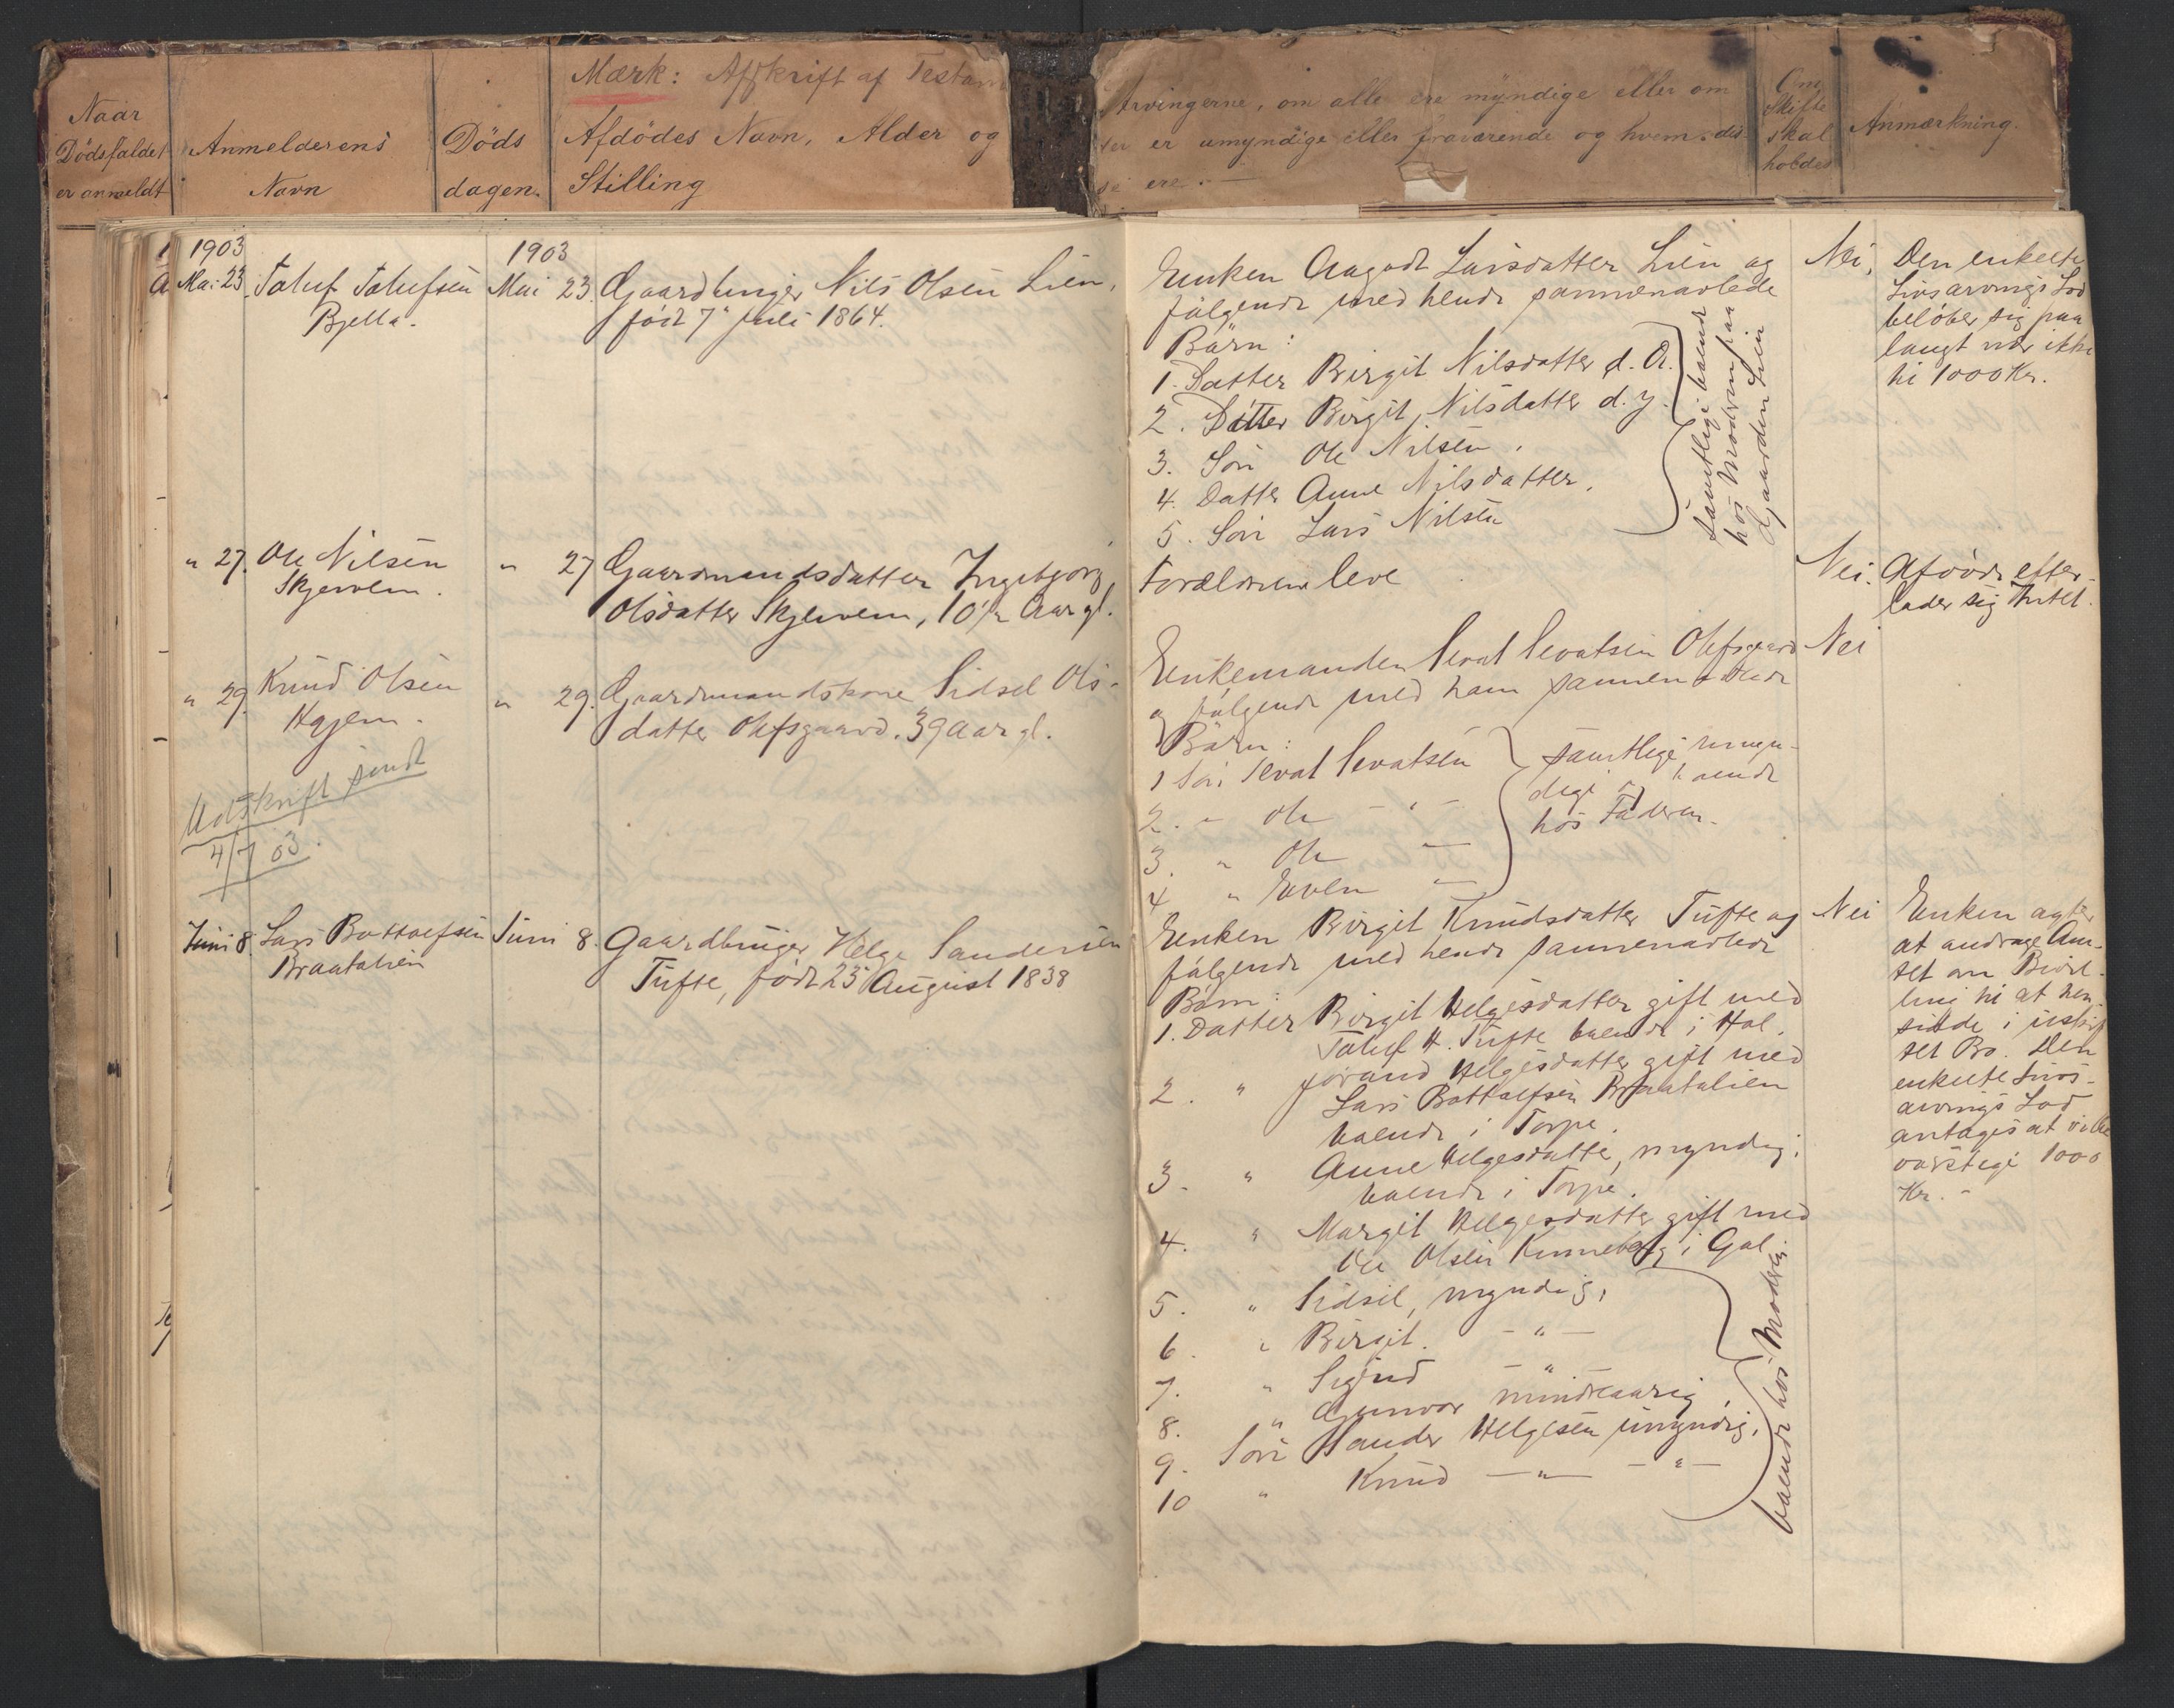 Mærk: Afskrift af Testam
Naar
Dödsfaldet
er anmeldt
Anmelderens
Navn
Döds
dagen.
Afdödes Navn, Alder og
Stilling
Arvingerne, om alle ere myndige eller om
er umyndige eller fraværende og hvem dis
se ere.
Om
Skifte
skal
holdes
Anmærkning.
1903
Mai 23.
Toluf Tolufsen
Bjella.
1903
Mai 23.
Gaardbruger Nils Olsen Lien,
föit 7de Juli 1864.
Enken Aagodt Larsdatter Lien og
fölgende med hende sammenavlede
Börn:
1. Datter Birgit Nilsdatter d. Æ.
2. Datter Birgit Nilsdatter d. y.
3. Sön Ole Nilsen.
4. Datter Anne Nilsdatter.
5. Sön Lars Nilsen
samtlige boende
hos Moderen paa
Gaarden Lien
Nei,
Den enkelte
Livsarvings Lod
belöber sig paa
langt nær ikke
til 1000 Kr.
" 27.
Ole Nilsen
Skjervem.
" 27
Gaardmandsdatter Ingebjorg
Olsdatter Skjervem, 10½ Aar gl.
Forældrene leve
Nei.
Afdöde efter-
lader sig Intet.
" 29.
Knud Olsen
" 29.
Gaardmandskone Sidsel Ols-
datter Olefsgaard. 39 Aar gl.
Enkemanden Sevat Sevatsen Olefsgaard
og fölgende med ham sammenavlede
Börn:
1 Sön Sevat Sevatsen
2. " Ole - " -
3. " Ole —
4 " Even —
samtlige umyn-
dige og boende
hos Faderen.
Nei
Udskrift sendt
4/7 03.
Juni 8.
Lars Bottolfsen
Braatalien
Juni 8.
Gaardbruger Helge Sandersen
Tufte, födt 25 August 1838
Enken Birgit Knudsdatter Tufte og
fölgende med hende sammenavlede
Börn:
1. Datter Birgit Helgesdatter gift med
Toluf H. Tufte boende i Hol.
2. " Jörand Helgesdatter gift med
Lars Bottolfsen Braatalien
boende i Torpe.
3. " Anne Helgesdatter, myndig,
boende i Torpe.
4. " Margit Helgesdatter gift med
Ole Olsen Kinneberg i Gol.
5. " Sidsel, myndig,
6. " Birgit. - " -
7. " Sigrid - " -
8. " Gunvor mindreaarig,
9. Sön Sander Helgesen umyndig,
10 " Knud — " — - " -
boende hos Moderen.
Nei
Enken agter
at andrage Am-
tet om Bevil-
ling til at hen-
sidde i uskif
tet Bo. Den
enkelte Livs-
arvings Lod
antages at ville
overstige 1000
Kr. -